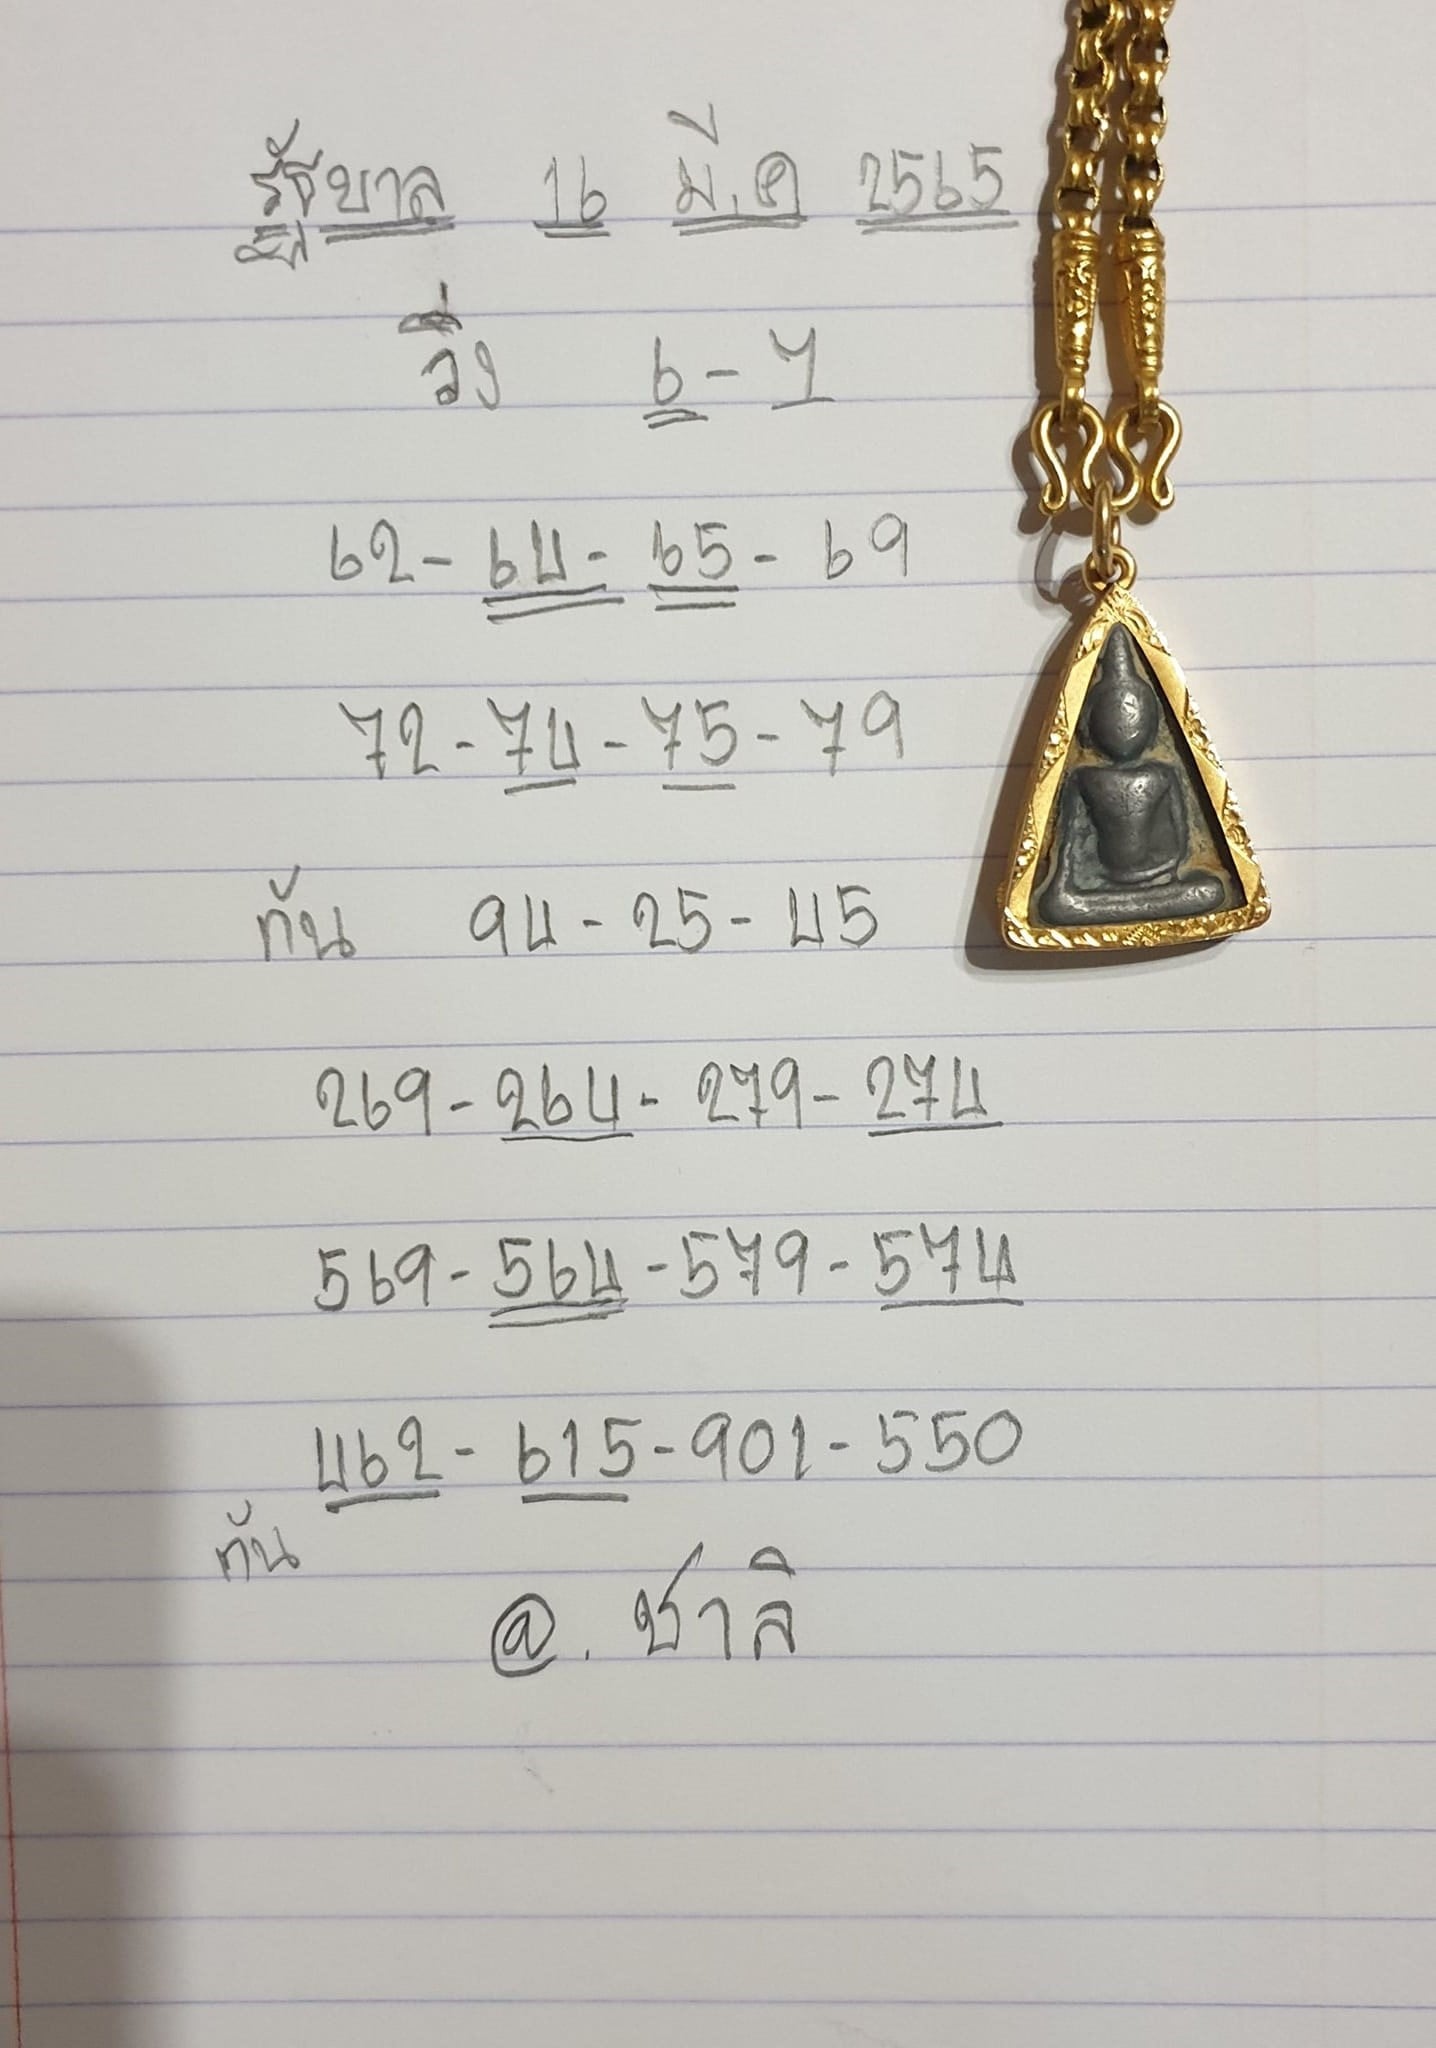 รัฐบาล 16 มี.ค 2565
วิ่ง 6 - 7
62 - 64 - 65 - 69
72 - 74 - 75 - 79
กัน 94 - 25 - 45
269 - 264 - 279 - 274
569 - 564 - 579 - 574
462 - 615 - 901 - 550
กัน
@. ชาลิ